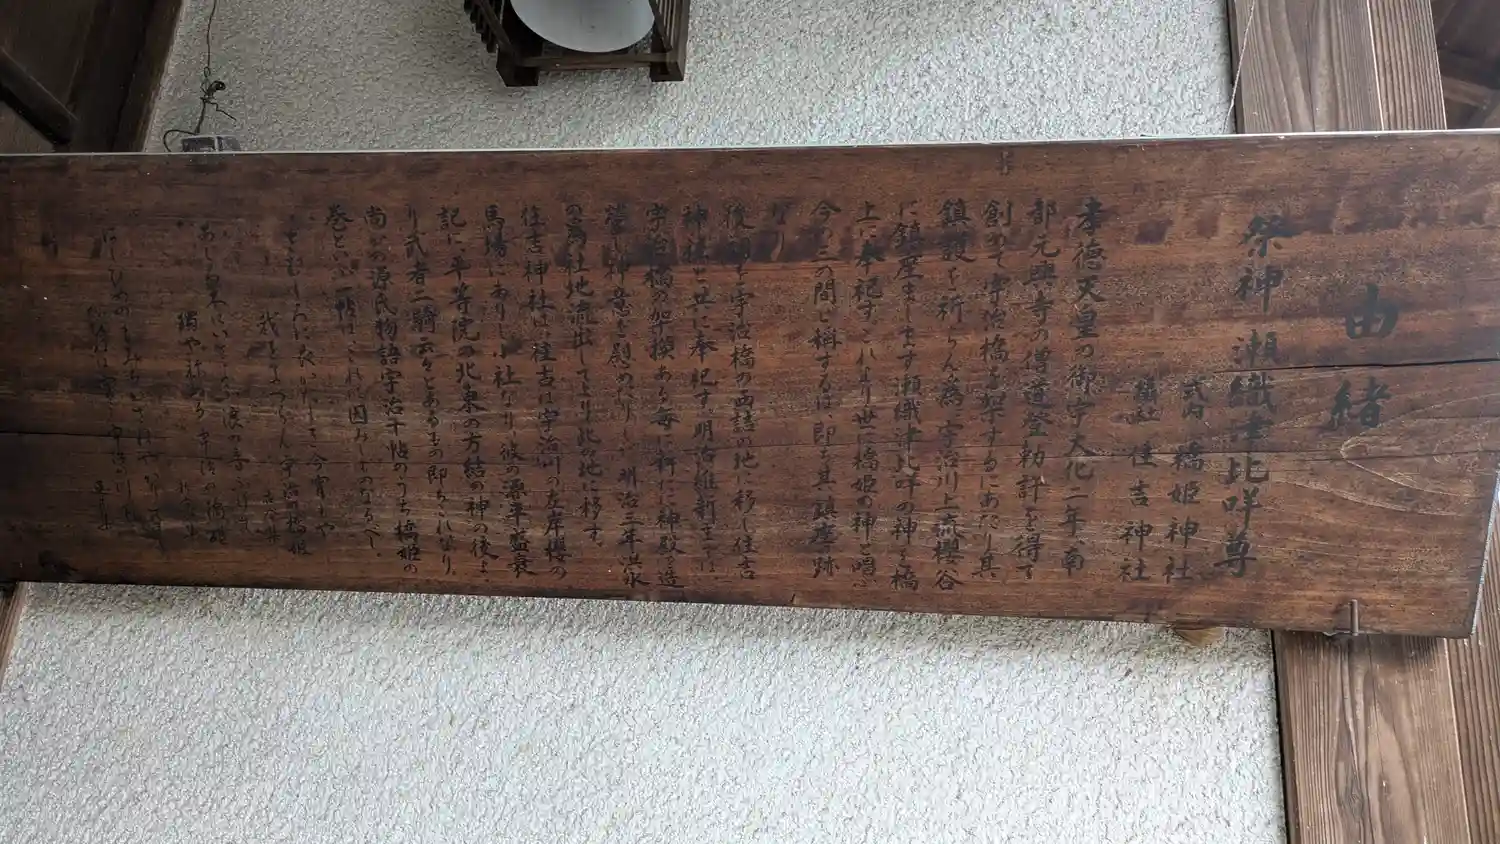 由緒
祭神 瀬織津比咩尊
式内 橋姫神社
摂社 住吉神社
孝徳天皇の御宇大化二年、南
都元興寺の僧道登勅許を得て
創めて宇治橋を架するにあたり其
鎮護を祈らん為、宇治川上流櫻谷
に鎮座まします瀬織津比咩の神を橋
上に奉祀す。これより世に橋姫の神と唱ふ
今の三の間と稱するは、即ち其鎮座の跡
なり。
後祠を宇治橋の西詰の地に移し住吉
神社と共に奉祀す。明治維新までは
宇治橋の架換ある毎に新たに神殿を造
営し神意を慰めたりしが明治三年洪水
の為社地流出してより此の地に移す。
住吉神社は往古は宇治川の左岸櫻の
馬場にありし小社なり彼の源平盛衰
記に平等院の北東の方結の神の後より
り武者二騎云々とあるも即ちこれなり。
尚かの源氏物語宇治十帖のうち橋姫の
巻といふ一帖はこれに因みしものなるべし。
さむしろに衣かたしき今宵もや
我をまつらん宇治の橋姫